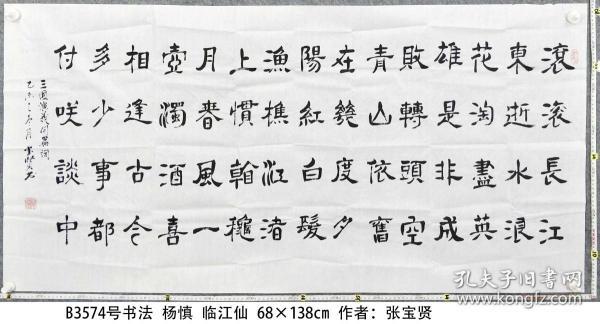 滾滾長江
東逝水浪
花淘盡英
雄是非成
敗轉頭空
青山依舊
在幾度夕
陽紅白髮
漁樵江渚
上慣看穐
月春風一
壺濁酒喜
相逢古今
多少事都
付咲談中
三國演義開篇詞
孔夫子旧书网
www.kongfz.com
B3574号书法 杨慎 临江仙 68×138cm 作者：张宝贤